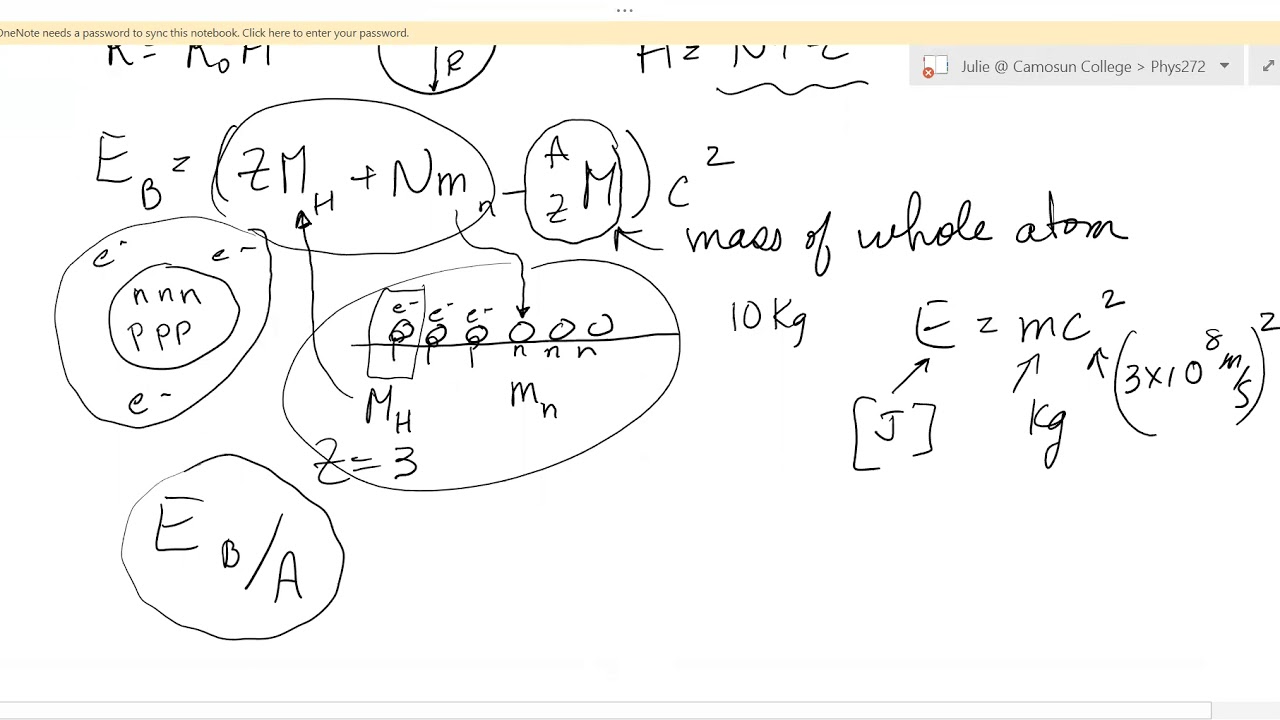 OneNote needs a password to sync this notebook. Click here to enter your password.
Julie @ Camosun College > Phys272
R
E_B = (ZM_H + Nm_n - ^A_Z M) c^2
mass of whole atom
e- e-
n n n
p p p
e-
e- e- e-
p p p n n n
M_H m_n
Z = 3
10 Kg
E = mc^2
(3×10^8 m/s)^2
[J] Kg
E_B/A